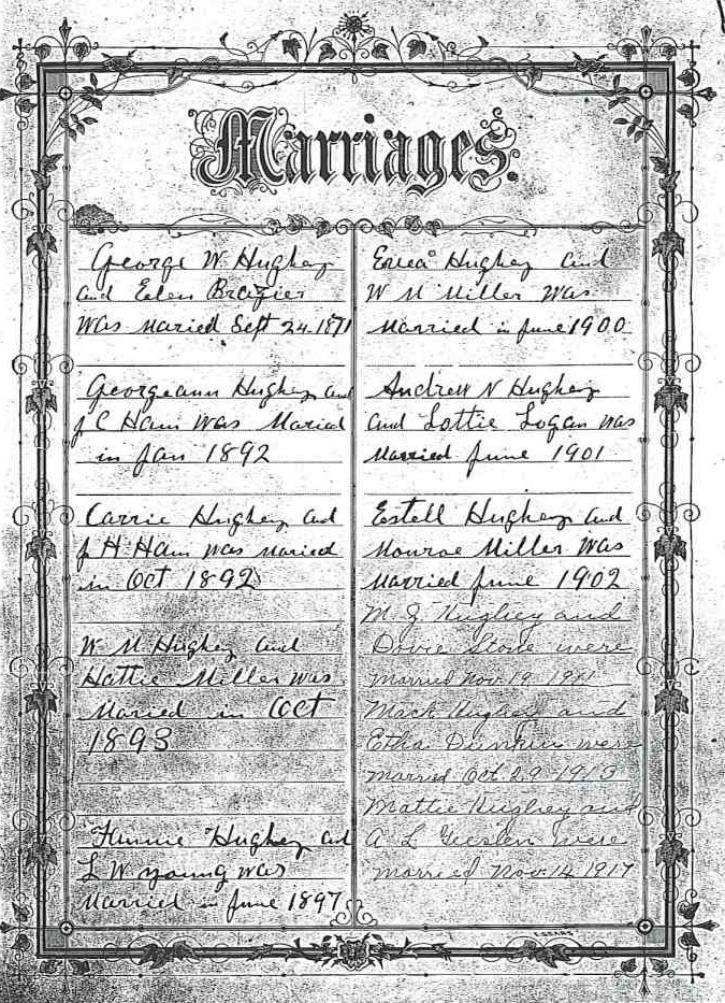 Marriages.
George W. Hughey
and Eelen Brazier
was Maried Sept 24-1871
Georgeann Hughey and
J C Ham was Maried
in Jan 1892
Carrie Hughey and
J H Ham was Maried
in Oct 1892
W. M Hughey and
Hattie Miller was
Maried in Oct
1893
Fannie Hughey and
L W young was
Married in June 1897
Hughey and
W M Miller Was
Married in June 1900
Andrew N Hughey
and Lottie Logan was
Married June 1901
Estell Hughey and
Monroe Miller Was
Married June 1902
M. G Hughey and
Dovie Stone were
married Nov. 19 1911
Mack Hughey and
Etha Dunkin were
married Oct. 29 1913
Mattie Hughey and
A L were
married Nov. 14 1917